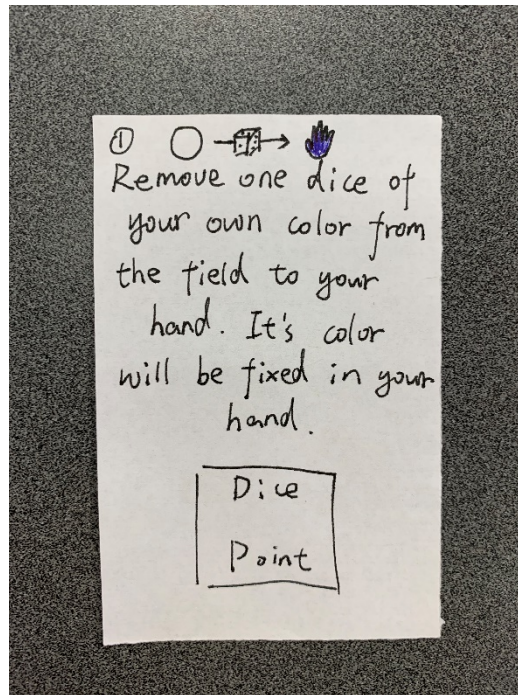 ①
Remove one dice of
your own color from
the field to your
hand. It's color
will be fixed in your
hand.
Dice
Point